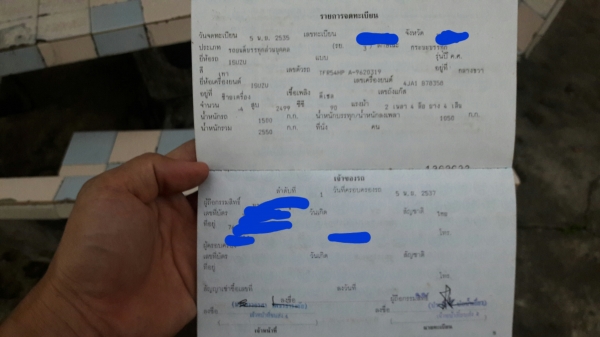 รายการจดทะเบียน
วันจดทะเบียน 5 พ.ย. 2535 เลขทะเบียน จังหวัด
ประเภท รถยนต์บรรทุกส่วนบุคคล (รย. 3 ) ลักษณะ กระบะบรรทุก
ยี่ห้อรถ ISUZU แบบ รุ่นปี ค.ศ.
สี เทา เลขตัวรถ TFR54HP A-9620319 อยู่ที่ กลางขวา
ยี่ห้อเครื่องยนต์ ISUZU เลขเครื่องยนต์ 4JA1 878358
อยู่ที่ ซ้ายเครื่อง เชื้อเพลิง ดีเซล เลขถังแก๊ส
จำนวน 4 สูบ 2499 ซีซี 90 แรงม้า 2 เพลา 4 ล้อ ยาง 4 เส้น
น้ำหนักรถ 1500 ก.ก. น้ำหนักบรรทุก/น้ำหนักลงเพลา 1050 ก.ก.
น้ำหนักรวม 2550 ก.ก. ที่นั่ง คน
เจ้าของรถ
ลำดับที่ 1 วันที่ครอบครองรถ 5 พ.ย. 2537
ผู้ถือกรรมสิทธิ์
เลขที่บัตร วันเกิด สัญชาติ ไทย
ที่อยู่ โทร.
ผู้ครอบครอง
เลขที่บัตร วันเกิด สัญชาติ
ที่อยู่ โทร.
สัญญาเช่าซื้อเลขที่ ลงวันที่ ผู้ถือกรรมสิทธิ์
ลงชื่อ ลงชื่อ
เจ้าหน้าที่ นายทะเบียน